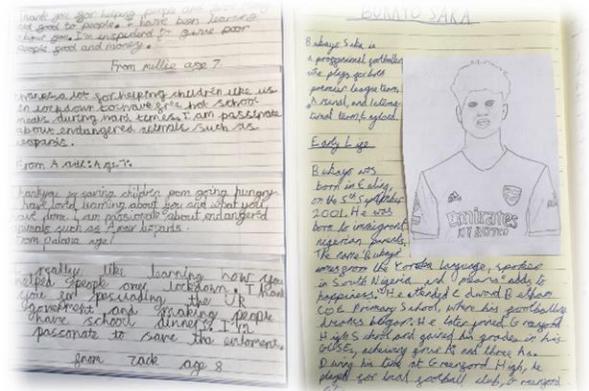 Thank you for helping people and
good to people. I have been learning
about you. I'm to give poor
people food and money.
From millie age 7
Thanks a lot for helping children like us
in lockdown to have free hot school
meals during hard times. I am passinate
about endangered animals such as
leopards.
From Age 7.
Thankyou for saving children from going hungry
I have loved learning about you and what you
have done. I am passionate about endangered
animals such as
from
I really like learning how you
helped people over lockdown. I thank
you for the UK
and making people
have school dinners. I'm
to save the
from Zack age 8
BUKAYO SAKA
Bukayo Saka is
a footballer
plays for both
premier league team,
Arsenal, and
team, England.
Early Life
Bukayo was
born in Ealing,
on the 5th September
2001. He was
born to immigrant
nigerian parents.
The name 'Bukayo'
comes from the Yoruba language, spoken
in South Nigeria and means "adds to
happiness." He attended Edward Betham
COE Primary School, where his footballing
dreams began. He later joined Greenford
High School and gained his grades in his
GCSE, four A*s and three As.
During his time at Greenford High, he
played for local football club, Greenford
Emirates
FLY BETTER